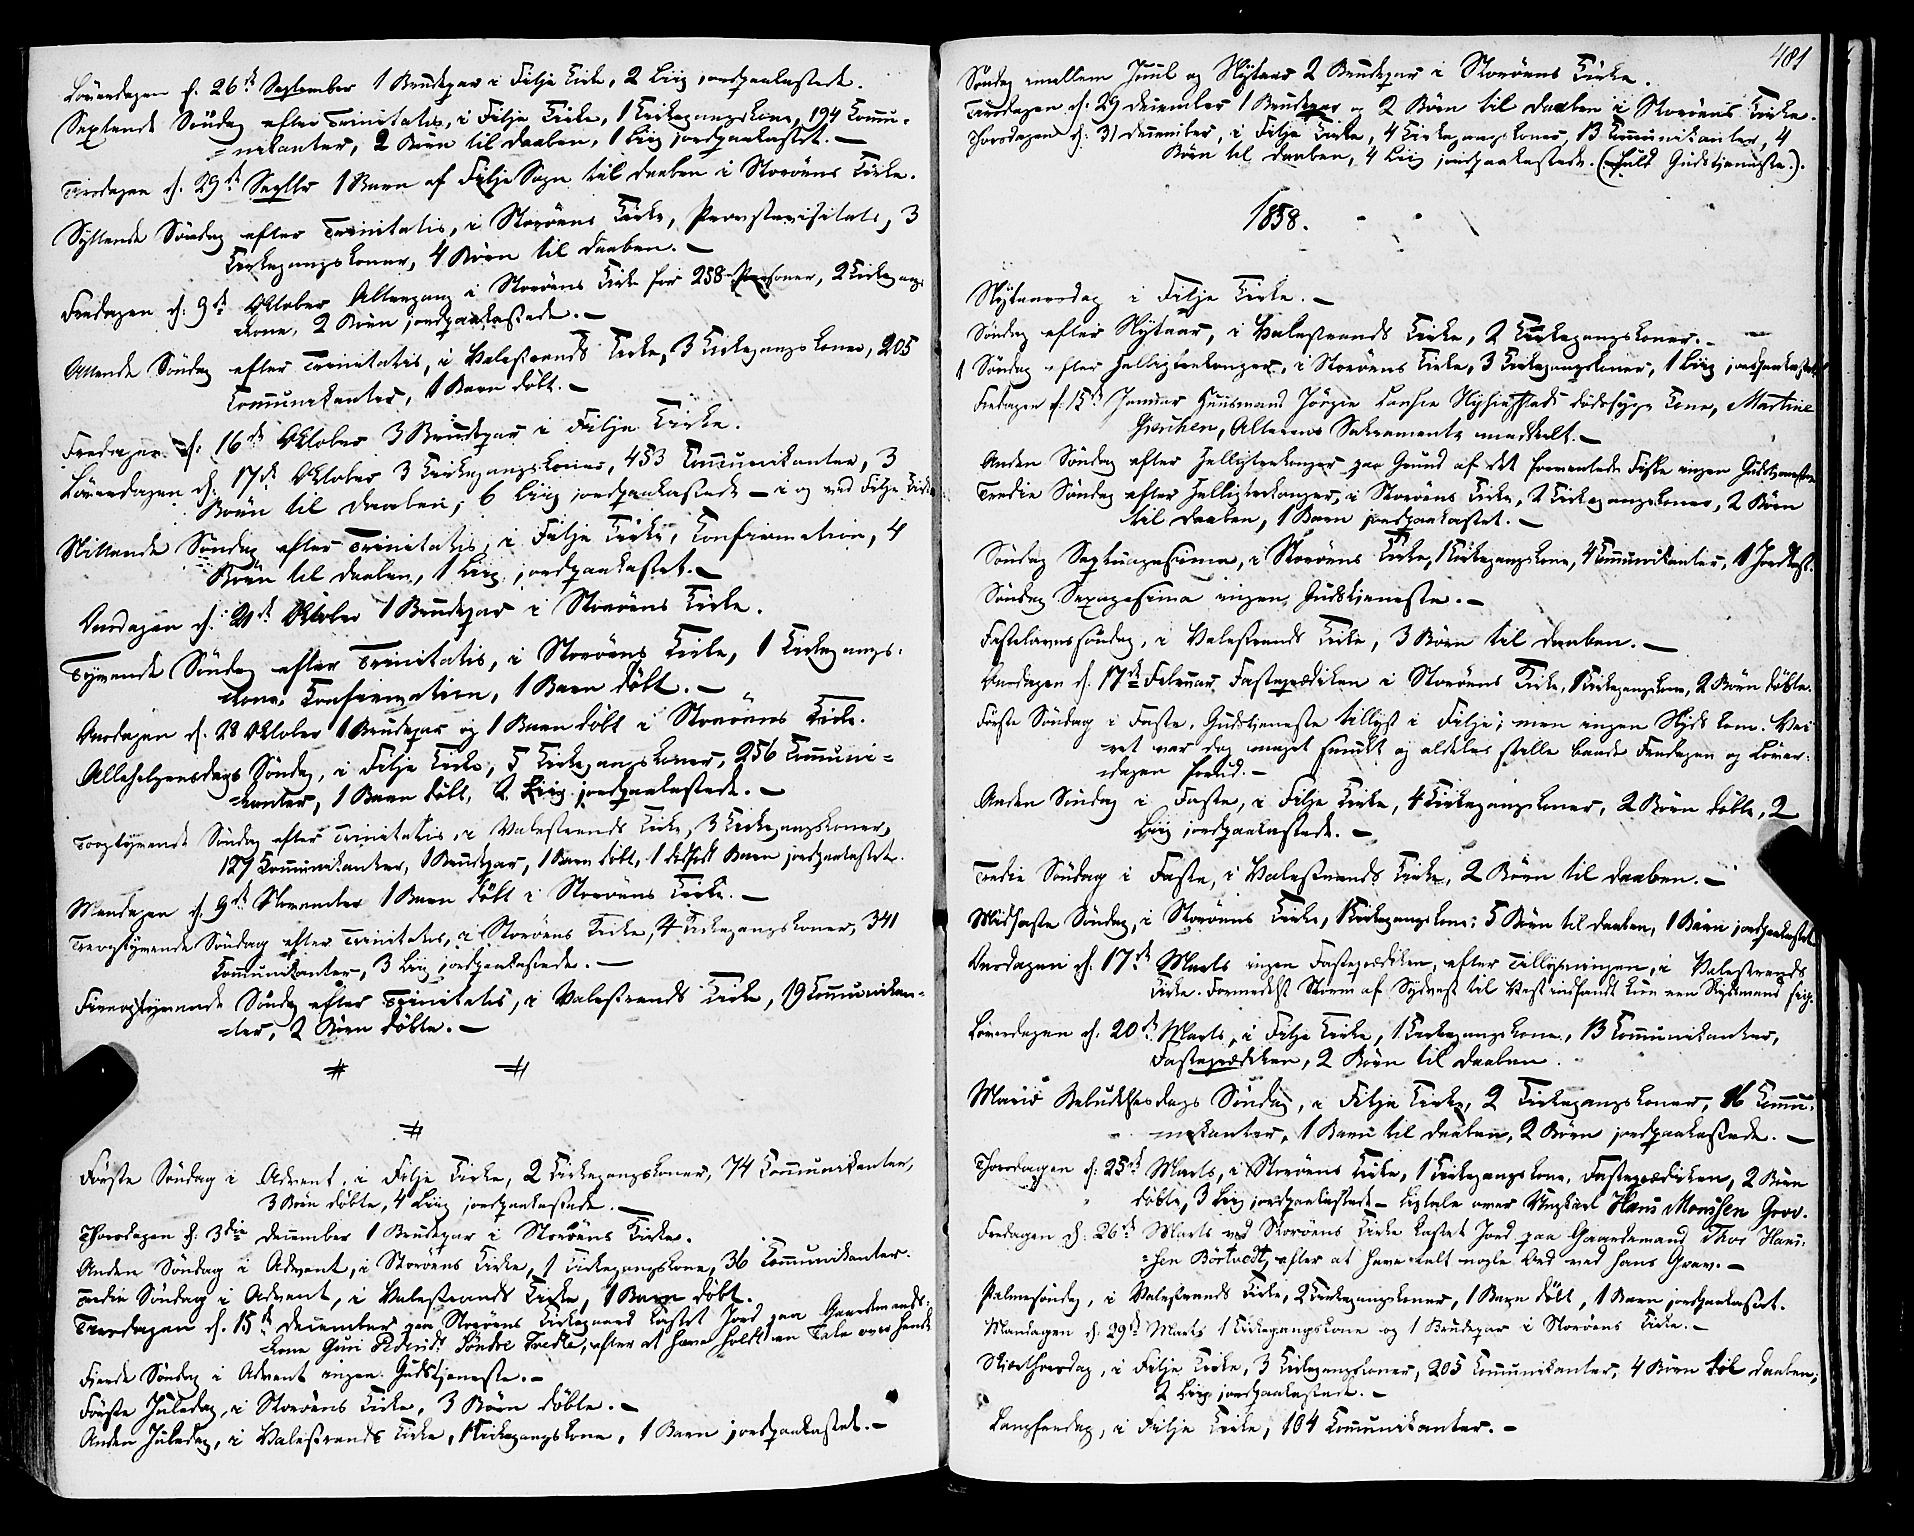 Löverdagen d. 26de September 1 Brudepar i Fitje Kirke, 2 Liig jordpaakastede.
Sextende Söndag efter Trinitatis, i Fitje Kirke, 1 Kirkegangskone, 194 Commu-
=nikanter, 2 Börn til Daaben, 1 Liig jordpaakastet. —
Tirsdagen d. 29de Septbr 1 Barn af Fitje Sogn til Daaben i Storöens Kirke.
Syttende Söndag efter Trinitatis, i Storöens Kirke, Provstevisitats, 3
Kirkegangskoner, 4 Börn til Daaben. —
Fredagen d. 9de Oktober Altergang i Storöens Kirke for 258 Personer, 2 Kirkegangs-
kone, 2 Börn jordpaakastede. —
Attende Söndag efter Trinitatis, i Valestrands Kirke, 3 Kirkegangskoner, 205
Communikanter, 1 Barn döbt. —
Fredagen d. 16de Oktober 3 Brudepar i Fitje Kirke.
Löverdagen d. 17de Oktober 3 Kirkegangskoner, 453 Communikanter, 3
Börn til Daaben, 6 Liig jordpaakastede — i og ved Fitje Kirke
Nittende Söndag efter Trinitatis, i Fitje Kirke, Confirmation, 4
Börn til Daaben, 1 Liig jordpaakastet. —
Onsdagen d. 21de Oktober 1 Brudepar i Storöens Kirke.
Tyvende Söndag efter Trinitatis, i Storöens Kirke, 1 Kirkegangs-
kone. Confirmation, 1 Barn döbt. —
Onsdagen d. 28 Oktober 1 Brudepar og 1 Barn döbt i Storöens Kirke.
Allehelgensdags Söndag, i Fitje Kirke, 5 Kirkegangskoner, 256 Communi=
=kanter, 1 Barn döbt, 2 Liig jordpaakastede. —
Toogtyvende Söndag efter Trinitatis, i Valestrands Kirke, 3 Kirkegangskoner,
127 Communikanter, 1 Brudepar, 1 Barn döbt, 1 dödfödt Barn jordpaakastet.
Mandagen d. 9de November 1 Barn döbt i Storöens Kirke. —
Treogtyvende Söndag efter Trinitatis, i Storöens Kirke, 4 Kirkegangskoner, 341
Communikanter, 3 Liig jordpaakastede. —
Fireogtyvende Söndag efter Trinitatis, i Valestrands Kirke, 19 Communikan=
=ter, 2 Börn döbte. —
# #
#
Förste Söndag i Advent, i Fitje Kirke, 2 Kirkegangskoner, 74 Communikanter,
3 Börn döbte, 4 Liig jordpaakastede. —
Thorsdagen d. 3die December 1 Brudepar i Storöens Kirke.
Anden Söndag i Advent, i Storöens Kirke, 1 Kirkegangskone, 36 Communikanter.
Tredie Söndag i Advent, i Valestrands Kirke, 1 Barn döbt.
Tirsdagen d. 15de December paa Storöens Kirkegaard kastet Jord paa Gaardmands-
kone Guri Pedersdr Söndre Tvedte, efter at have holdt en Tale over hende
Fjerde Söndag i Advent ingen Gudstjeneste. —
Förste Juledag, i Storöens Kirke, 3 Börn döbte. —
Anden Juledag, i Valestrands Kirke, 1 Kirkegangskone, 1 Barn jordpaakastet. —
481
Söndag imellem Juul og Nytaar 2 Brudepar i Storöens Kirke.
Tirsdagen d. 29 December 1 Brudepar og 2 Börn til Daaben i Storöens Kirke.
Thorsdagen d. 31 December, i Fitje Kirke, 4 Kirkegangskoner, 13 Communikanter, 4
Börn til Daaben, 4 Liig jordpaakastede. (Fuld Gudstjeneste.).
1858.
Nytaarsdag i Fitje Kirke. —
Söndag efter Nytaar, i Valestrands Kirke, 2 Kirkegangskoner. —
1 Söndag efter Helligtrekonger, i Storöens Kirke, 3 Kirkegangskoner, 1 Liig jordpaakastet
Fredagen d. 15de Januar Huusmand dödssyge Kone, Martine
Alterens Sakramente meddeelt. —
Anden Söndag efter Helligtrekonger paa Grund af det formentede Fiske ingen Gudstjeneste
Tredie Söndag efter Helligtrekonger, i Storöens Kirke, 2 Kirkegangskoner, 2 Börn
til Daaben, 1 Barn jordpaakastet. —
Söndag Septuagesima, i Storöens Kirke, 1 Kirkegangskone, 4 Communikanter, 1 Jordkast.
Söndag Sexagesima ingen Gudstjeneste. —
Fastelavnssöndag, i Valestrands Kirke, 3 Börn til Daaben. —
Onsdagen d. 17de Februar Fasteprædiken i Storöens Kirke, 1 Kirkegangskone, 2 Börn döbte.
Förste Söndag i Faste, Gudstjeneste tillyst i Fitje; men ingen Skyds kom. Vei-
ret var dog meget smukt og aldeles stille baade Fredagen og Löver-
dagen forud. —
Anden Söndag i Faste, i Fitje Kirke, 4 Kirkegangskoner, 2 Börn döbte, 2
Liig jordpaakastede. —
Tredie Söndag i Faste, i Valestrands Kirke, 2 Börn til Daaben. —
Midfaste Söndag, i Storöens Kirke, 1 Kirkegangskone, 5 Börn til Daaben, 1 Barn jordpaakastet
Onsdagen d. 17de Marts ingen Fasteprædiken, efter Tillysningen, i Valestrands
Kirke. Formedelst Storm af Sydvest til Vest indfandt kun een Skydsmand sig.
Löverdagen d. 20de Marts, i Fitje Kirke, 1 Kirkegangskone, 13 Communikanter,
Fasteprædiken, 2 Börn til Daaben.
Mariæ Bebudelsesdags Söndag, i Fitje Kirke, 2 Kirkegangskoner, 16 Commu-
nikanter, 1 Barn til Daaben, 2 Börn jordpaakastede. —
Thorsdagen d. 25de Marts, i Storöens Kirke, 1 Kirkegangskone, Fasteprædiken, 2 Börn
döbte, 3 Liig jordpaakastede — Ligtale over Ungkarl Hans Monssen Grov.
Fredagen d. 26de Marts ved Storöens Kirke kastet Jord paa Gaardmand Thor Hans-
=sen Börtvedt, efter at have talt nogle Ord ved hans Grav. —
Palmesöndag, i Valestrands Kirke, 2 Kirkegangskoner, 1 Barn döbt, 1 Barn jordpaakastet.
Mandagen d. 29de Marts 1 Kirkegangskone og 1 Brudepar i Storöens Kirke. —
Skjærthorsdag, i Fitje Kirke, 3 Kirkegangskoner, 205 Communikanter, 4 Börn til Daaben,
2 Liig jordpaakastede. —
Langfredag, i Fitje Kirke, 104 Communikanter. —